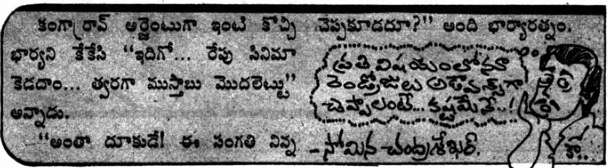 కంగార్రావ్ అర్జెంటుగా ఇంటి కొచ్చి
భార్యని కేకేసి "ఇదిగో... రేపు సినిమా
కెడదాం... త్వరగా ముస్తాబు మొదలెట్టు"
అన్నాడు.
"అంతా దూకుడే! ఈ సంగతి నిన్న
చెప్పకూడదూ?" అంది భార్యారత్నం.
ప్రతి విషయంలోనూ
రెండ్రోజులు అడ్వాన్స్‌గా
చెప్పాలంటే.. కష్టమేనే..!
- సోమిన చంద్రశేఖర్.